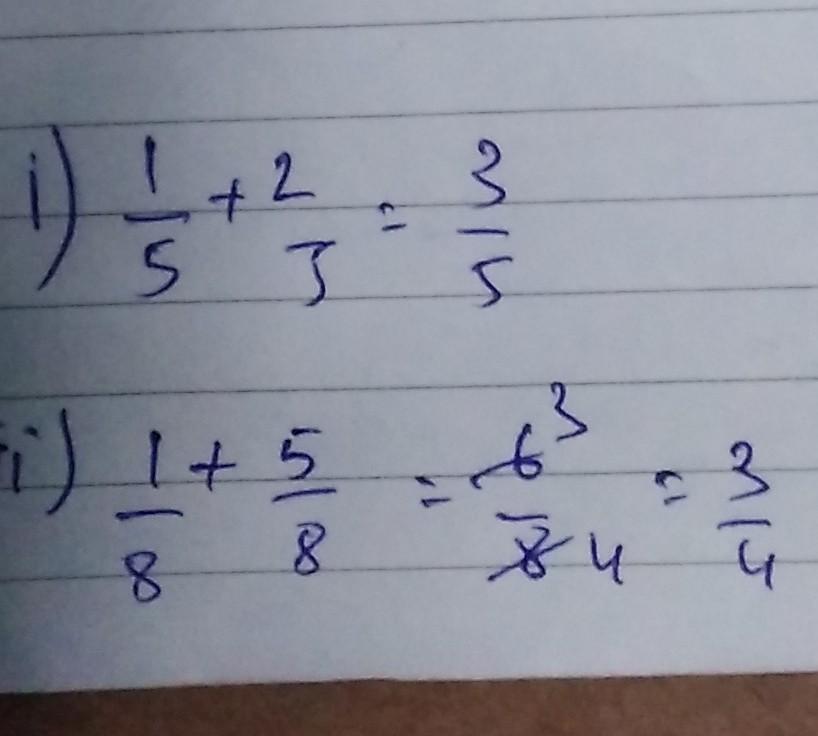 i) 1/5 + 2/5 = 3/5
ii) 1/8 + 5/8 = 6/8 3 4 = 3/4